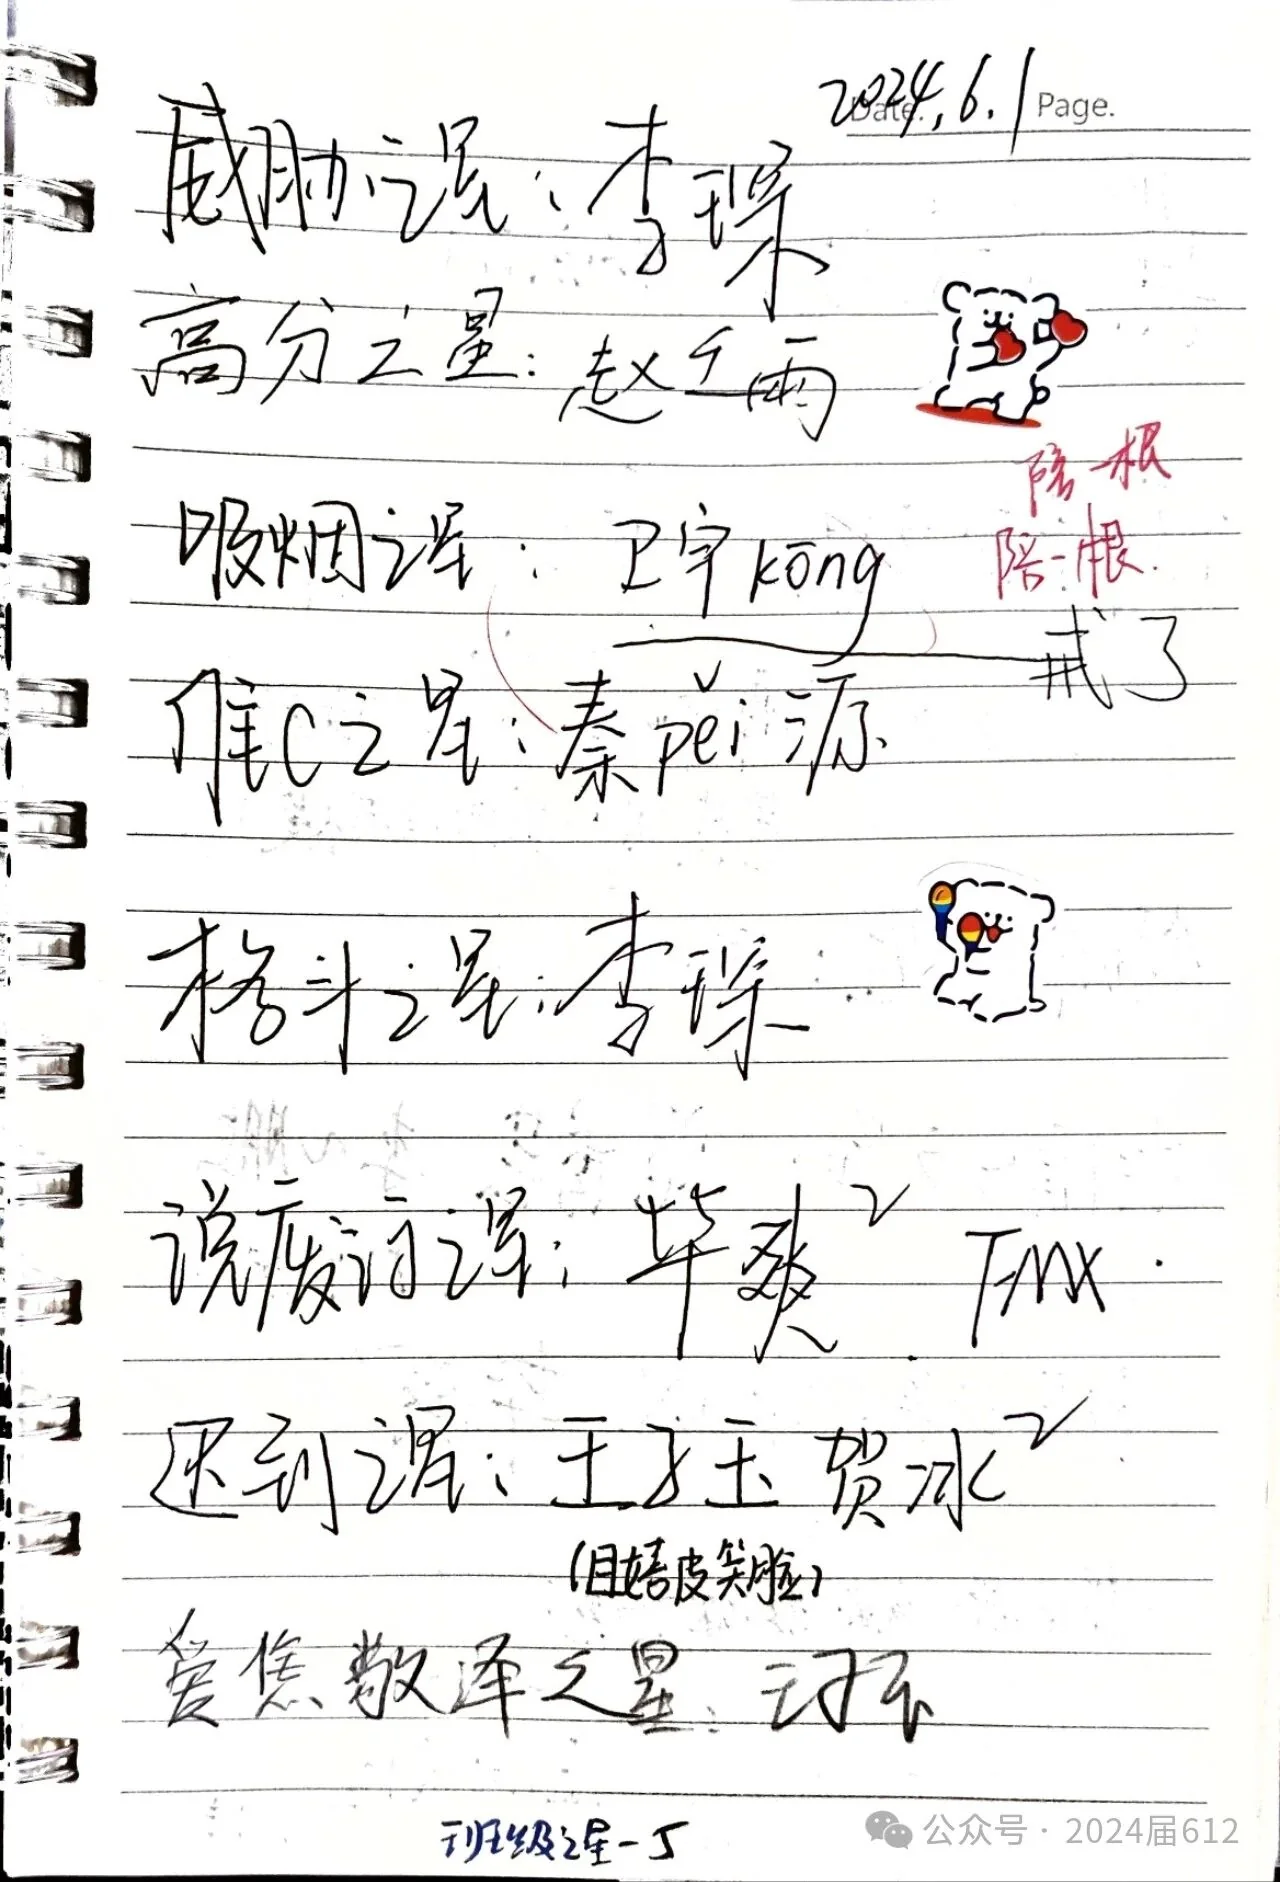 2024.6.1
Date. Page.
威胁之星：李琛
高分之星：赵千雨
陪一根
陪一根.
吸烟之星：卫宇kōng
戒了
维C之星：秦pěi源
格斗之星：李琛
说废话之星：毕爽² FMX.
迟到之星：王子玉 贺冰²
(且嬉皮笑脸)
爱焦敬泽之星：
班级之星-5
公众号·2024届612